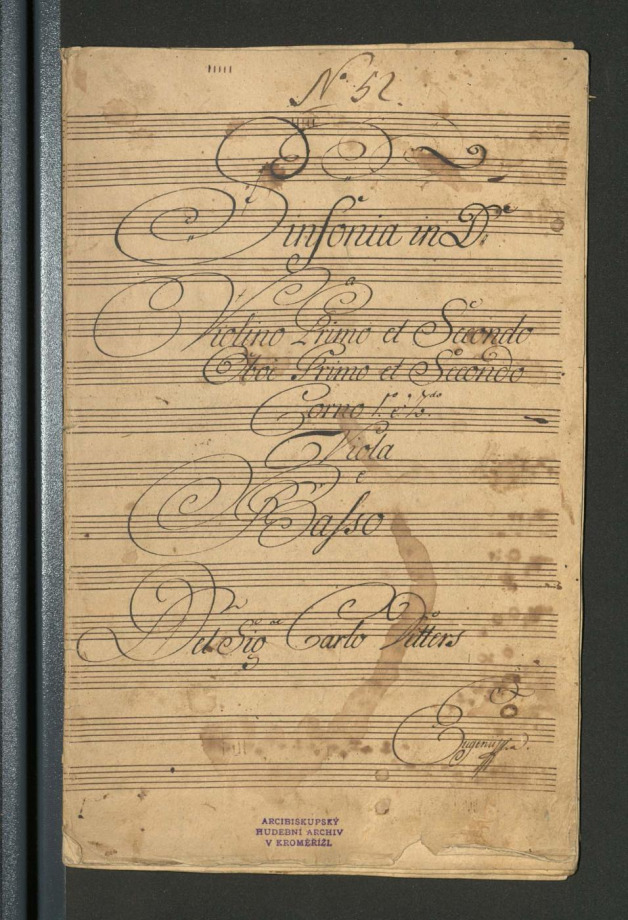 No 52.
Sinfonia in D.
Violino Primo et Secondo
Oboe Primo et Secondo
Corno 1.o e 2.do
Viola
e
Basso
Del Sig.re Carlo Ditters
Eugenius
ARCIBISKUPSKÝ
HUDEBNÍ ARCHIV
V KROMĚŘÍŽI.